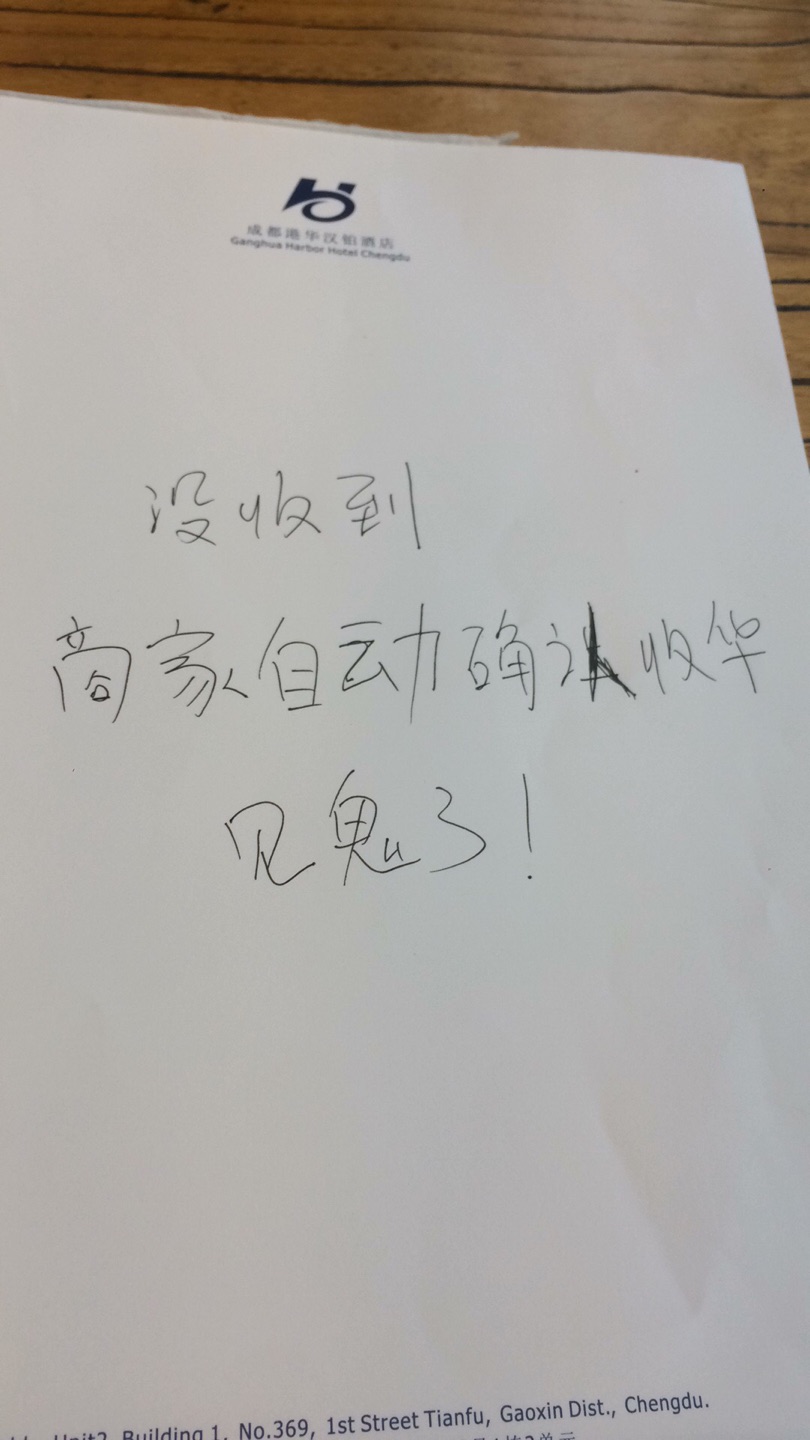 成都港华汉铂酒店
Ganghua Harbor Hotel Chengdu
没收到
商家自动确认收华
见鬼了!
Building 1, No.369, 1st Street Tianfu, Gaoxin Dist., Chengdu.